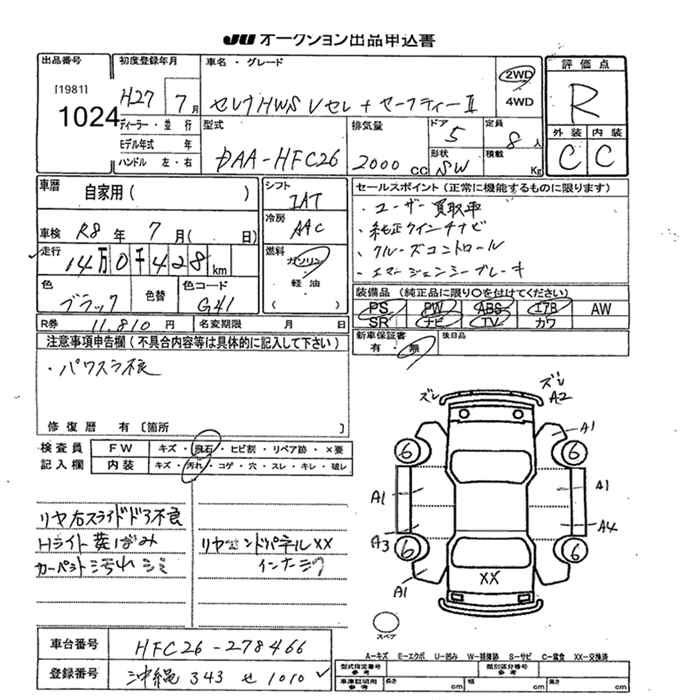 JU オークション出品申込書
出品番号 初度登録年月 車名・グレード 評価点
[1981]
1024
H27 7月
セレナHWS Vセレ+セーフティーII
2WD
4WD
R
ディーラー・並行
モデル年式 年
ハンドル 左・右
型式 DAA-HFC26
排気量 2000 cc
ドア 5
形状 SW
定員 8人
積載 Kg
外装 内装
C C
車歴 自家用( )
シフト IAT
セールスポイント(正常に機能するものに限ります)
・ユーザー買取車
・純正ツインナビ
・クルーズコントロール
・エマージェンシーブレーキ
車検 R8年 7月( 日)
冷房 AAC
走行 14万0千428km
燃料 ガソリン
・
軽油
( )
色 ブラック 色替
色コード G41
装備品(純正品に限り○を付けてください)
PS PW ABS エアB AW
SR ナビ TV カワ
R券 11.810円 名変期限 月 日
新車保証書 有・無
後日品
注意事項申告欄(不具合内容等は具体的に記入して下さい)
・パワスラ不良
修復歴 有〔箇所 〕
検査員 FW キズ・飛石・ヒビ割・リペア跡・×要
記入欄 内装 キズ・汚れ・コゲ・穴・スレ・キレ・破レ
リヤ右スライドドア不良
Hライト黄ばみ
カーペット汚れシミ
リヤエンドパネルXX
インナージワ
ズレ ズレ
A2
A1
6 6
A1 A1
A3 A4
6 6
A1
XX
スペア
車台番号 HFC26-278466
登録番号 沖縄 343 せ 1010
A-キズ E-エクボ U-凹み W-補修跡 S-サビ C-腐食 XX-交換済
型式指定番号 参考
類別区分番号 参考
車庫証明用 参考
長さ cm 幅 cm 高さ cm